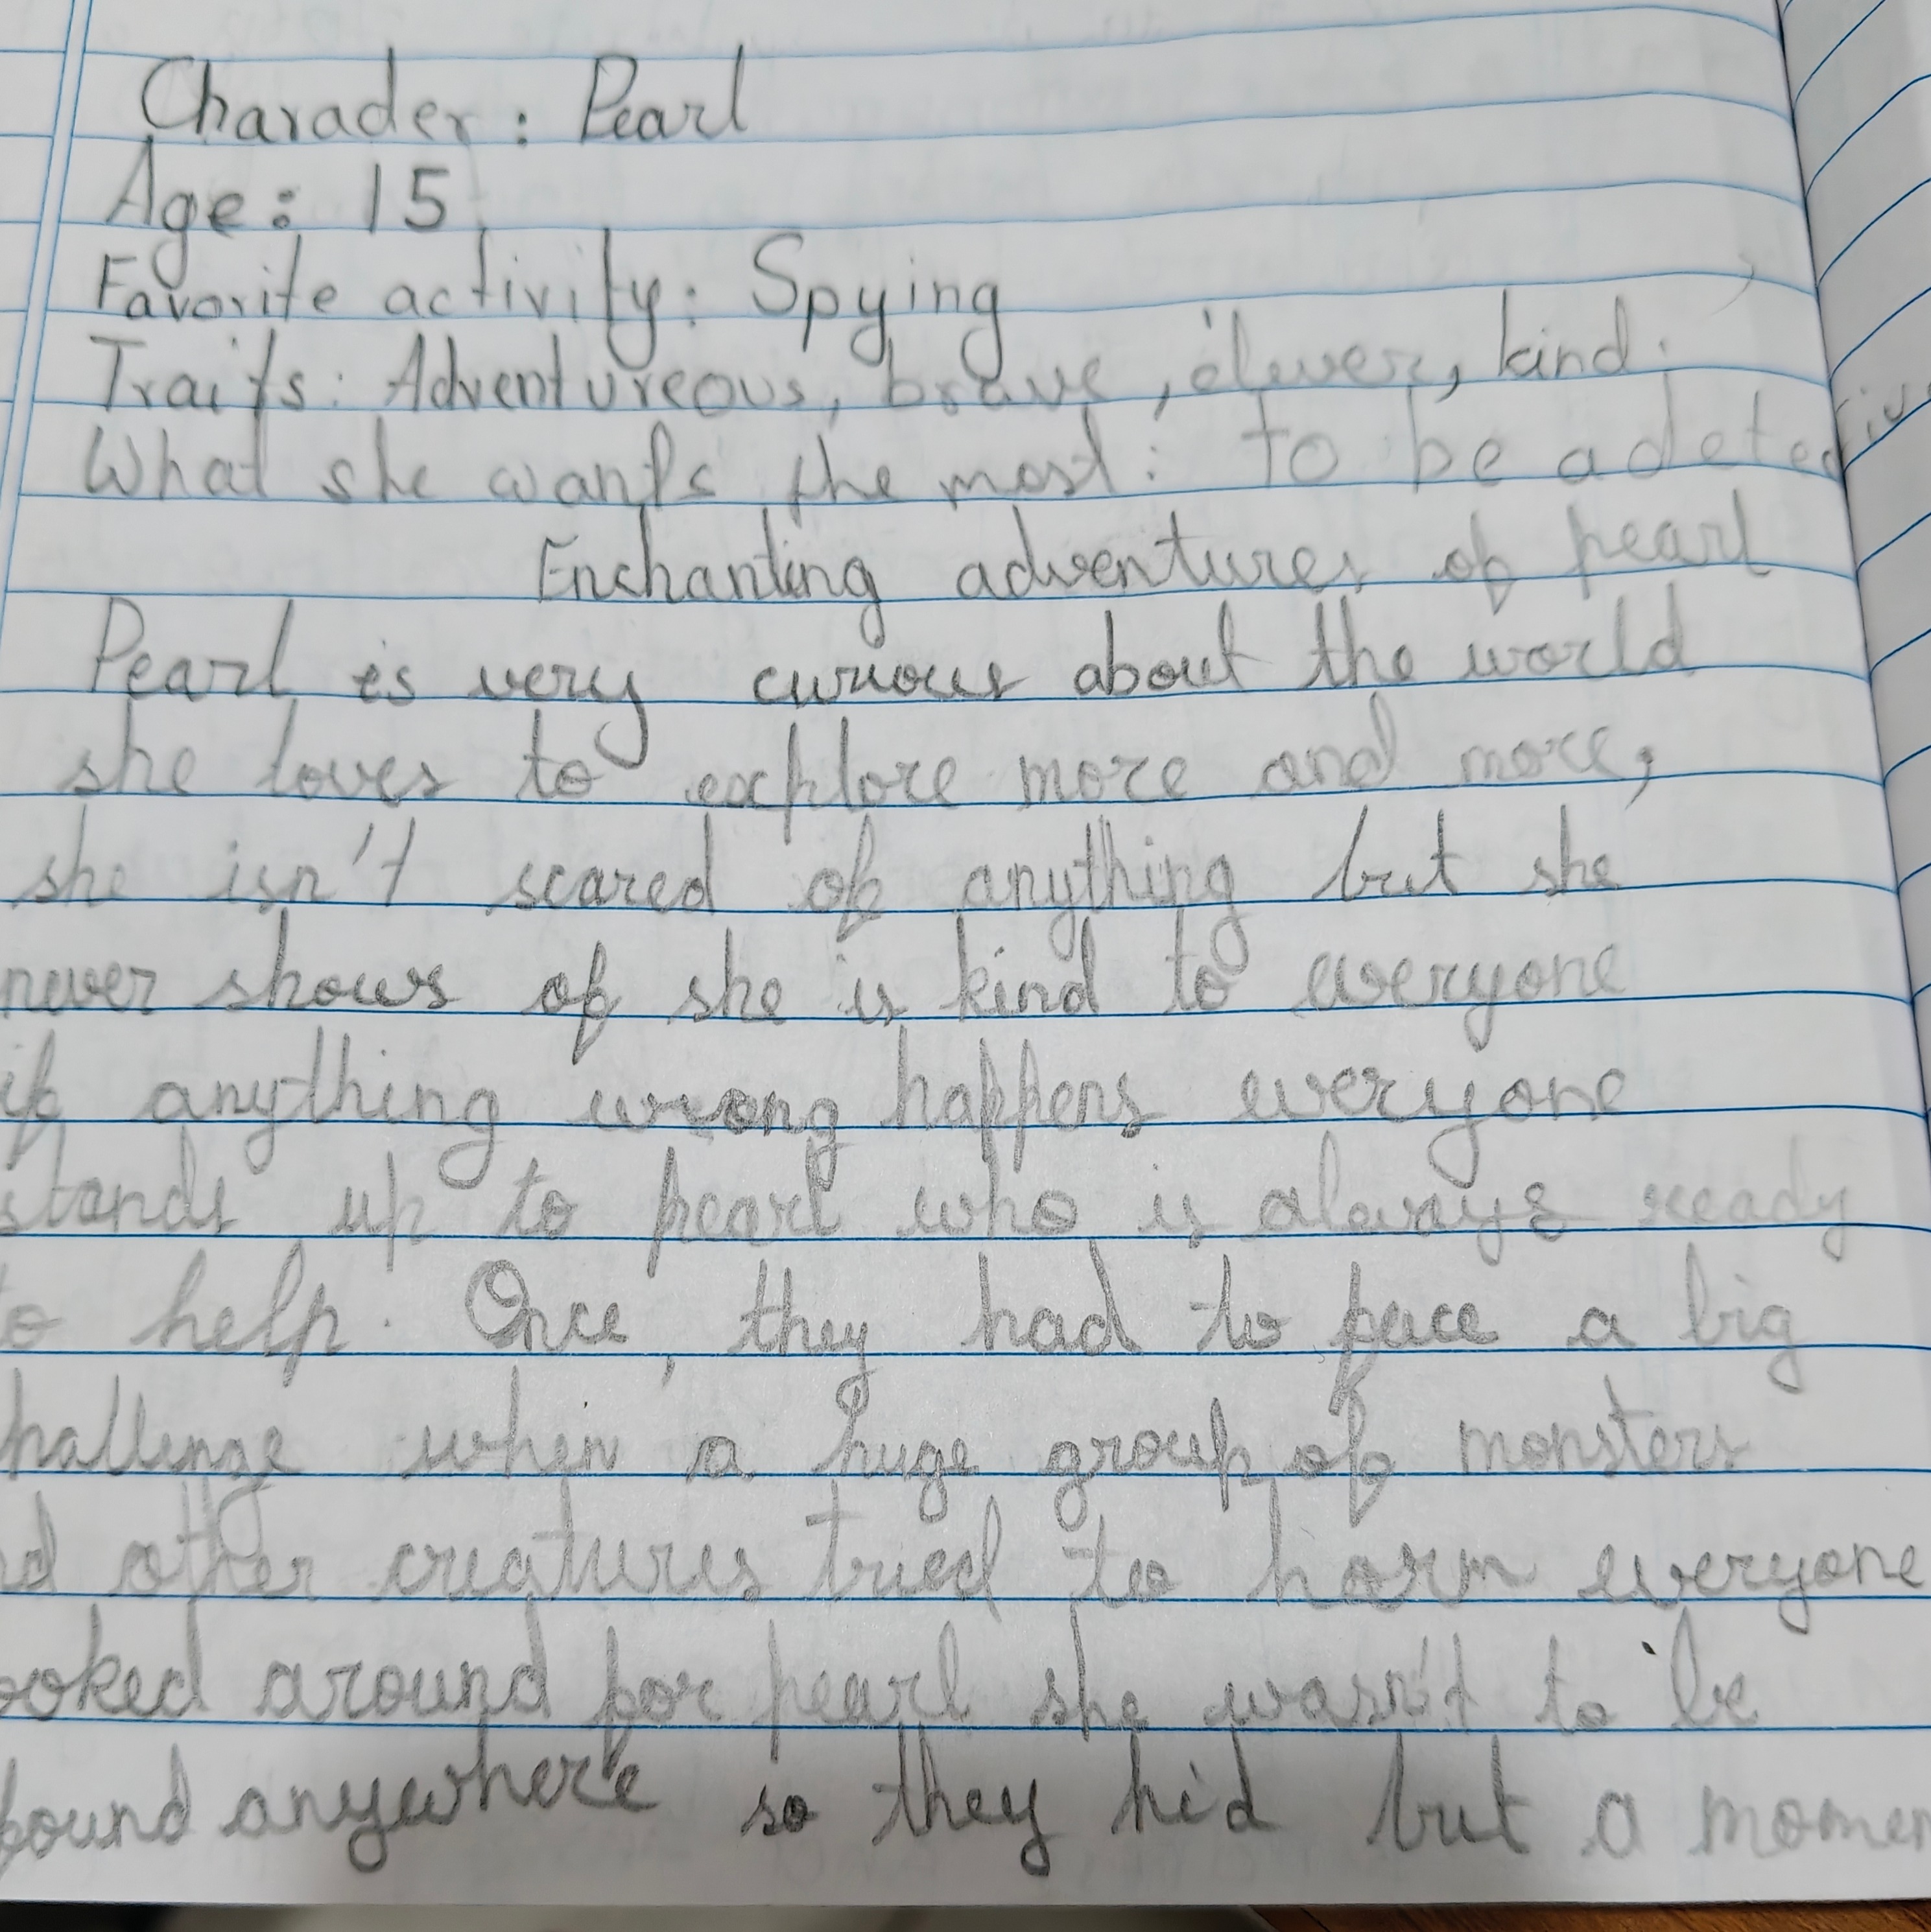 Charader: Pearl
Age: 15
Favorite activity: Spying
Traits: Adventureous, brave, clever, kind.
What she wants the most: To be a detective
Enchanting adventures of pearl
Pearl is very curious about the world
she loves to explore more and more,
she isn't scared of anything but she
never shows of she is kind to everyone
if anything wrong happens everyone
stands up to pearl who is always ready
to help. Once, they had to face a big
hallenge when a huge group of monsters
d other creatures tried to harm everyone
ooked around for pearl she wasn't to be
found anywhere so they hid but a momen